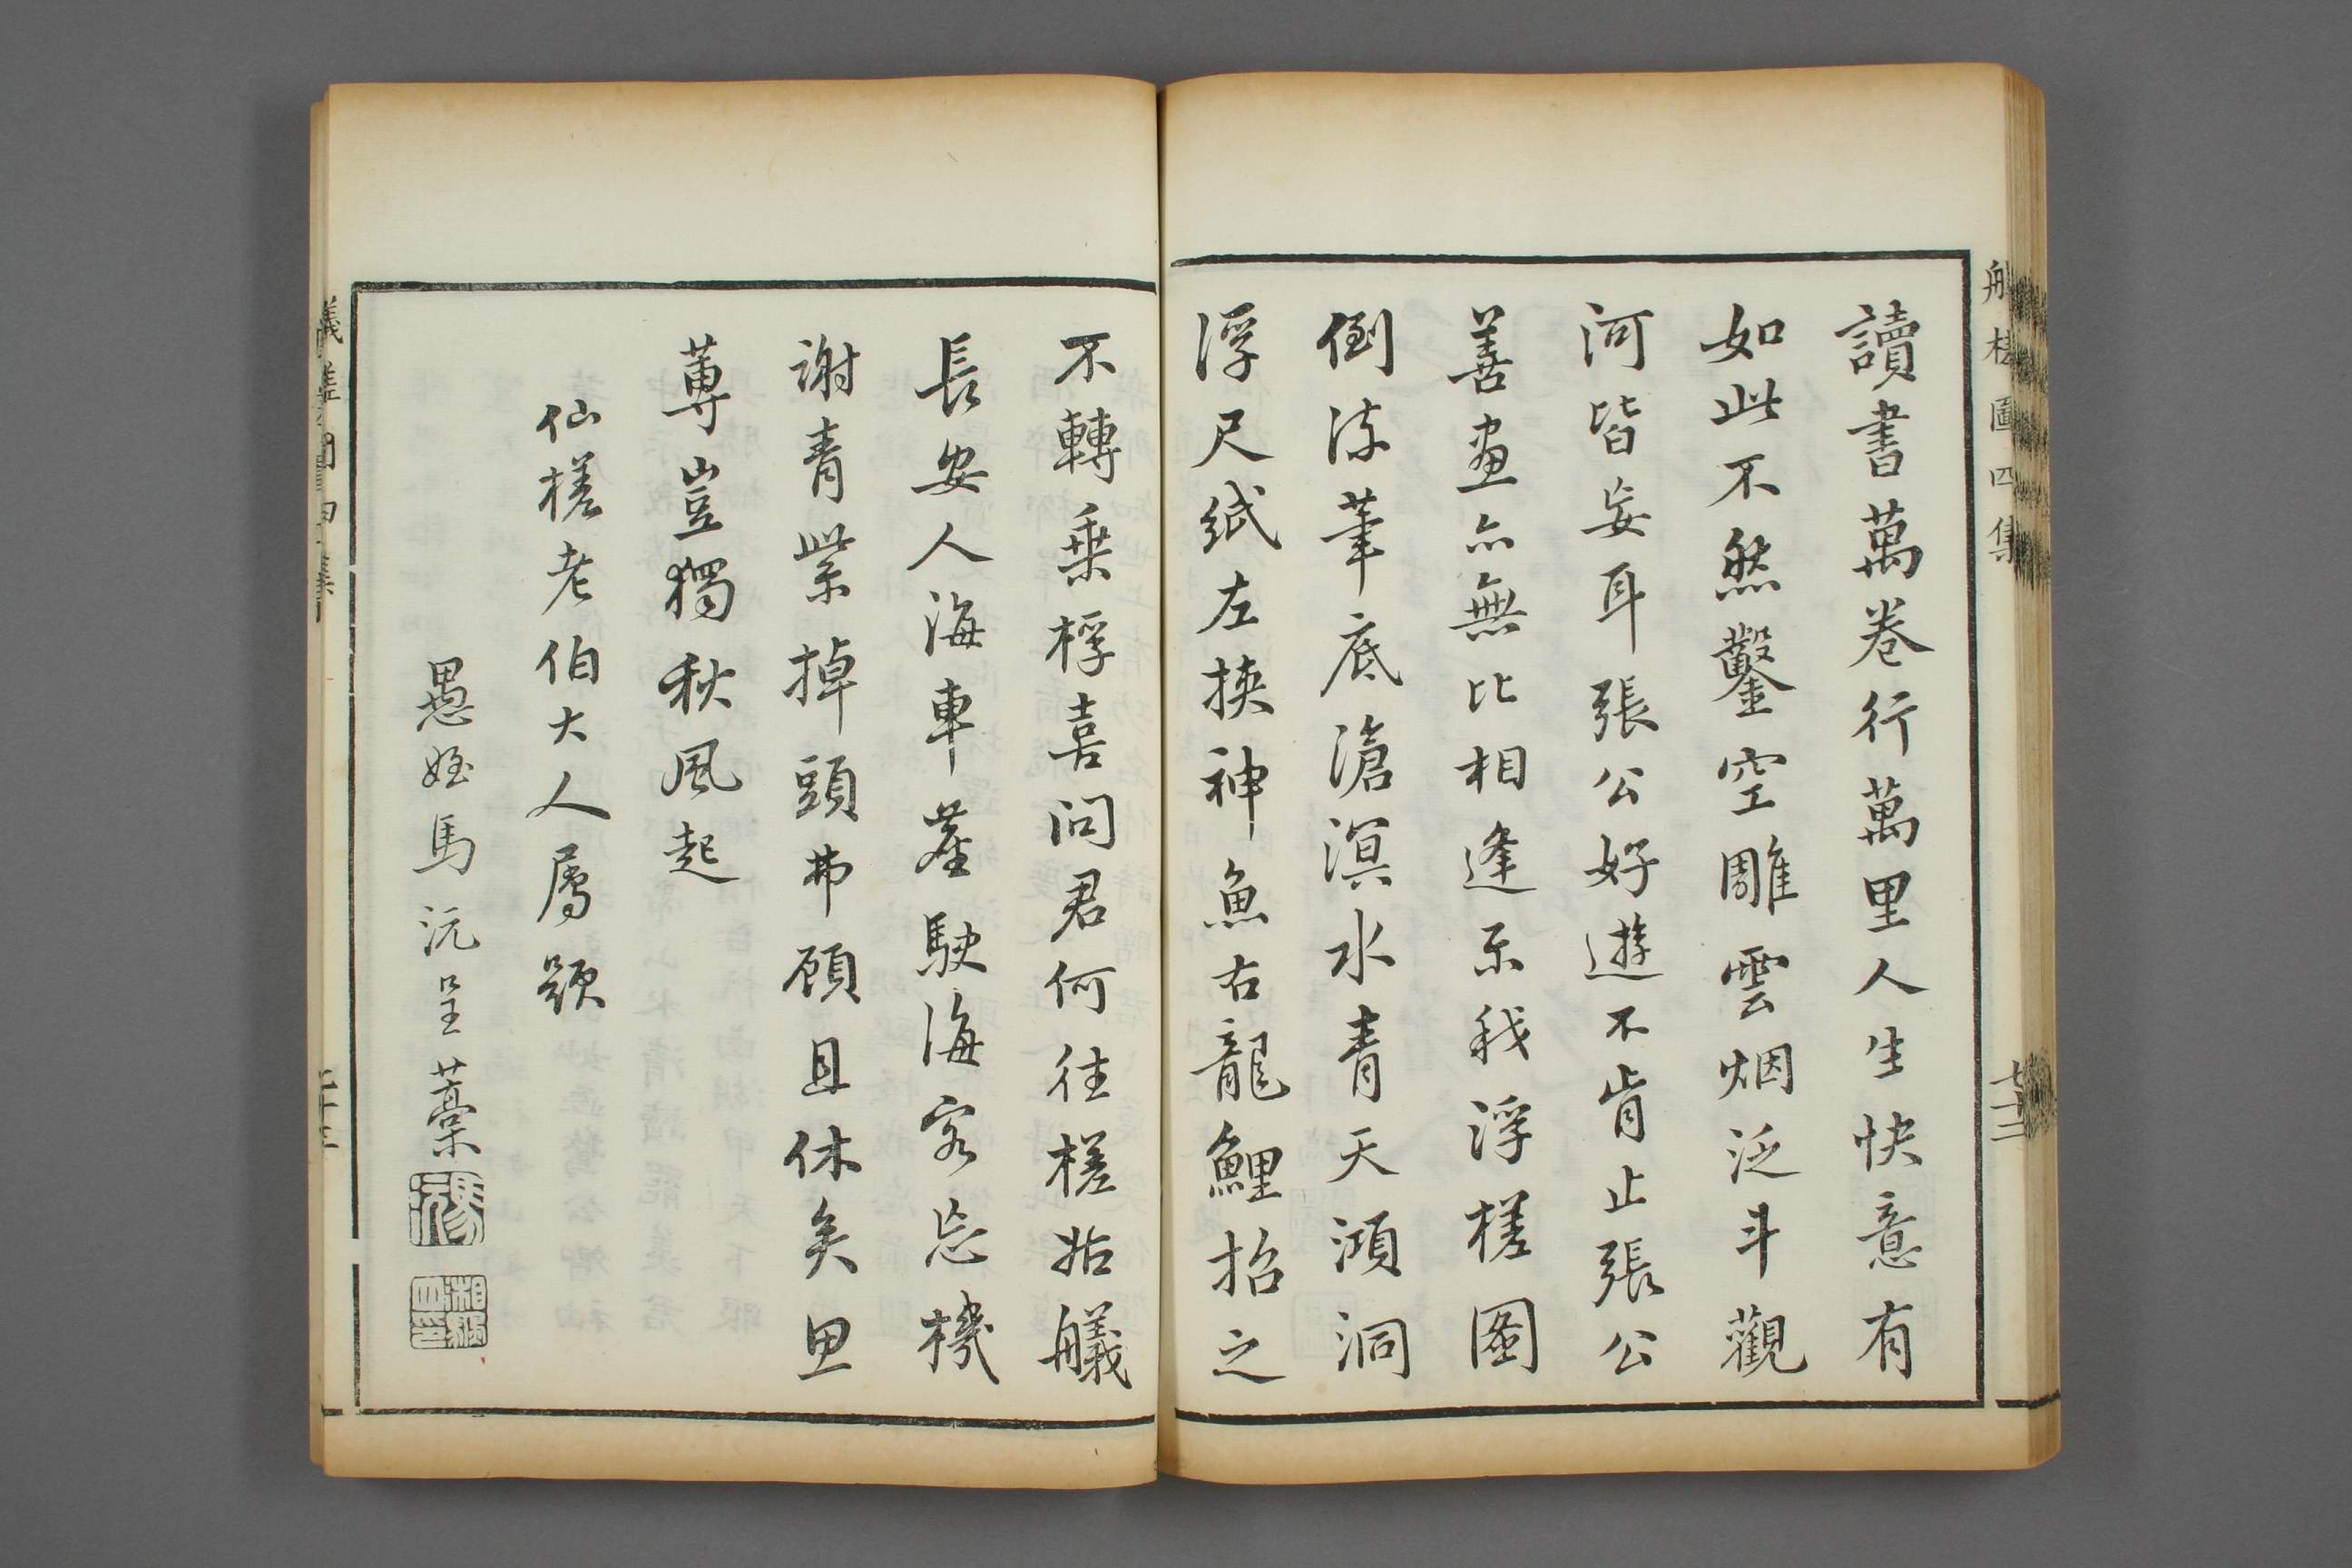 槎圖四集
七十二
讀書萬卷行萬里人生快意有
如此不然鑿空雕雲烟泛斗觀
河皆妄耳張公好遊不肯止張公
善畫亦無比相逢示我浮槎圖
倒流筆底滄溟水青天澒洞
浮尺紙左挾神魚右龍鯉招之
不轉乘桴喜問君何往槎姑艤
長安人海車塵駛海客忘機
謝青紫掉頭弗顧且休矣思
蓴豈獨秋風起
仙槎老伯大人屬題
愚姪馬沅呈藁